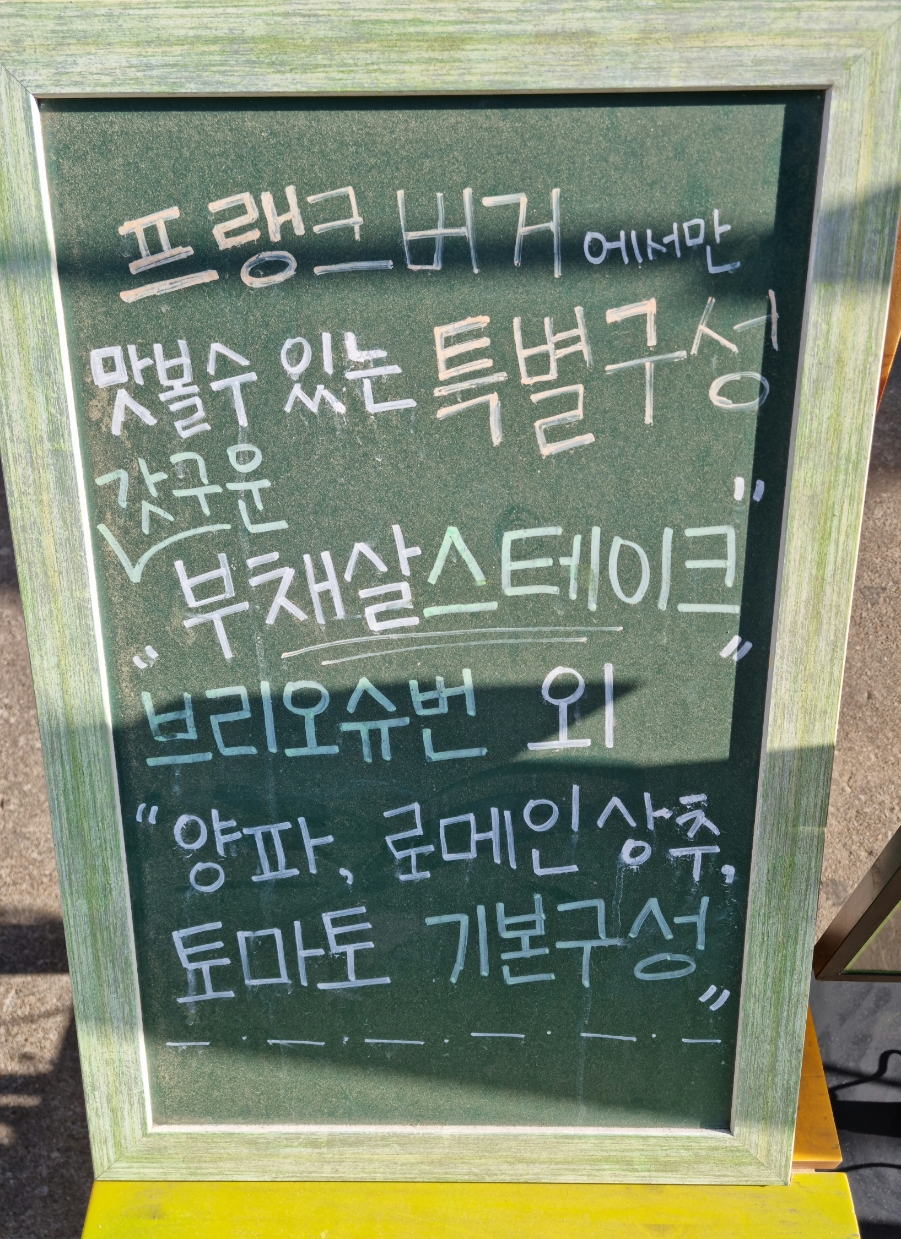 프랭크버거에서만
맛볼수 있는 특별구성
갓구운
부채살스테이크"
"브리오슈번 외"
"양파, 로메인상추,
토마토 기본구성"